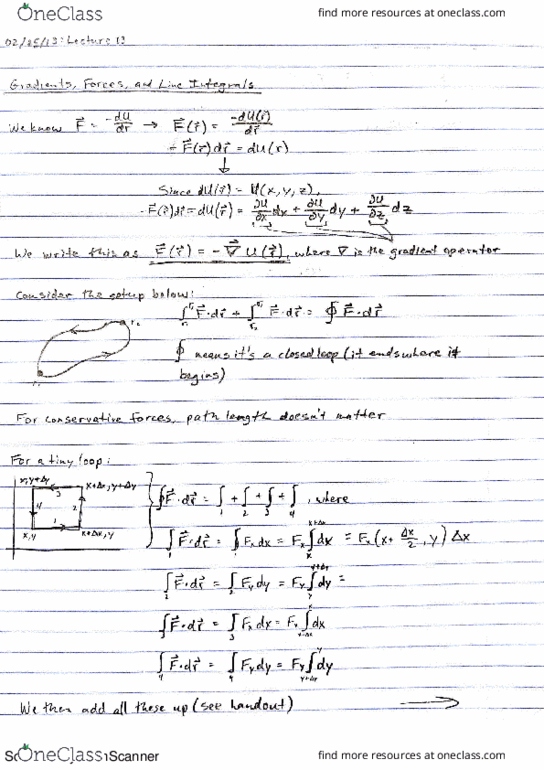 OneClass
find more resources at oneclass.com
02/25/13: Lecture 13
Gradients, Forces, and Line Integrals
We know F⃗ = -dU/dr → F⃗(r⃗) = -dU(r⃗)/dr⃗
- F⃗(r⃗)dr⃗ = dU(r)
↓
Since dU(r⃗) = U(x,y,z),
-F⃗(r⃗)dr⃗ = dU(r⃗) = ∂U/∂x dx + ∂U/∂y dy + ∂U/∂z dz
We write this as F⃗(r⃗) = -∇⃗ U(r⃗), where ∇ is the gradient operator
Consider the setup below:
∫ F⃗·dr⃗ + ∫ F⃗·dr⃗ = ∮ F⃗·dr⃗
r₂
∮ means it's a closed loop (it ends where it
begins)
For conservative forces, path length doesn't matter
For a tiny loop:
x,y+Δy
x+Δx, y+Δy
3
4
2
1
x,y
x+Δx, y
∮F⃗·dr⃗ = ∫₁ + ∫₂ + ∫₃ + ∫₄, where
∫₁ F⃗·dr⃗ = ∫₁ Fₓ dx = Fₓ ∫ₓ^(x+Δx) dx = Fₓ(x+ Δx/2, y) Δx
∫₂ F⃗·dr⃗ = ∫₂ F_y dy = F_y ∫_y^(y+Δy) dy =
∫₃ F⃗·dr⃗ = ∫₃ Fₓ dx = Fₓ ∫_(x+Δx)^x dx
∫₄ F⃗·dr⃗ = ∫₄ F_y dy = F_y ∫_(y+Δy)^y dy
We then add all these up (see handout) →
OneClass
Scanner
find more resources at oneclass.com